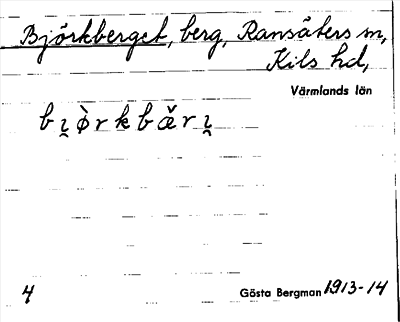 Björkberget, berg, Ransäters sn,
Kils hd,
Värmlands län
bi̯ø̀rkbæ̌ri̯
4 Gösta Bergman 1913-14